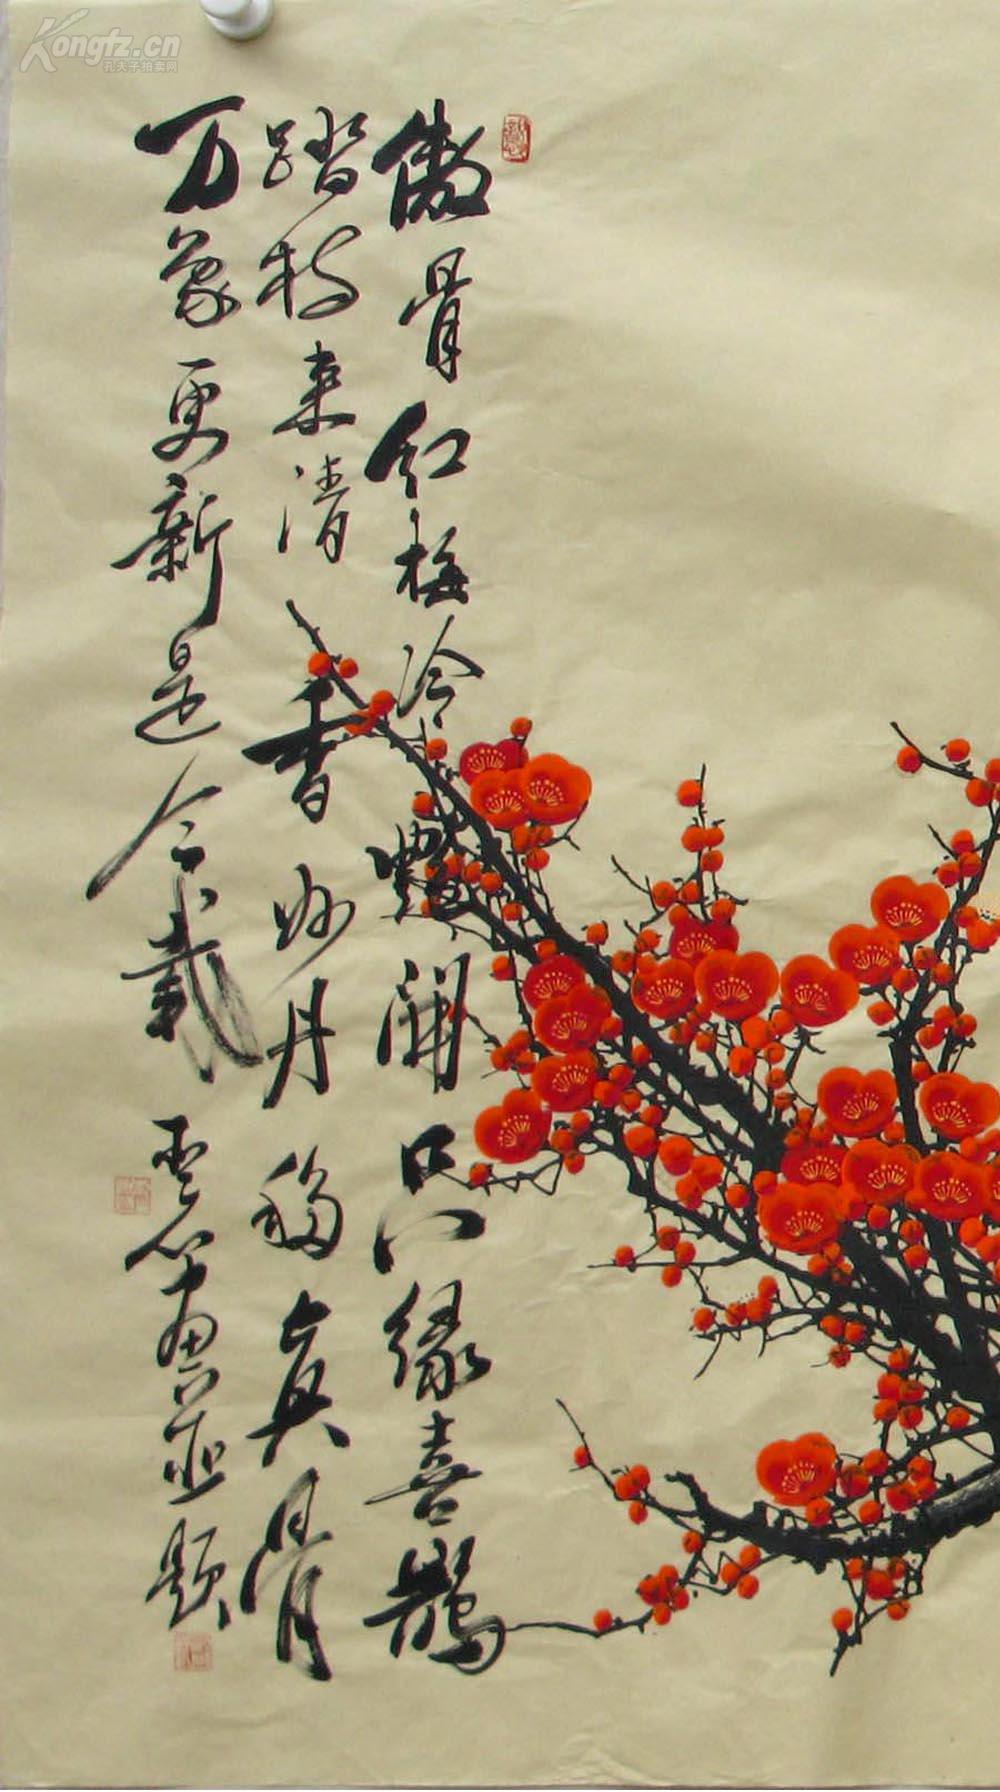 傲骨红梅冷艳开只缘喜鹊
踏枝来清香妙丹移真骨
万象更新是今载
画并题
Kongfz.cn
孔夫子拍卖网